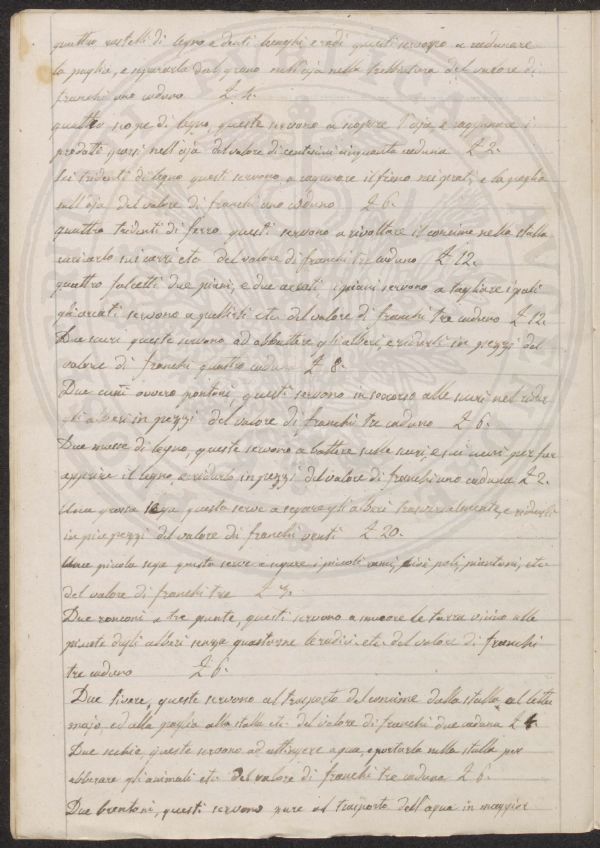 quattro rastelli di legno a denti lunghi e radi questi servono a radunare
la paglia, e separarla dal grano nell'aja nella trebbiatura del valore di
franchi uno caduno £ 4.
quattro scope di legno, queste servono a scopare l'aja e raggunare i
prodotti sparsi nell'aja del valore di centesimi cinquanta caduna £ 2.
Sei tridenti di legno questi servono a ragunare il fieno nei prati e la paglia
sull'aja del valore di franchi uno caduno £ 6.
quattro tridenti di ferro questi servono a rivoltare il concime nella stalla
caricarlo sui carri etc. del valore di franchi tre caduno £ 12.
quattro falcetti due piani, e due arcati i piani servono a tagliare i pali
gli arcati servono a pulirli etc. del valore di franchi tre caduno £ 12.
Due scuri queste servono ad abbattere gli alberi, e ridurli in pezzi del
valore di franchi quattro caduna £ 8.
Due cunii ovvero pontoni, questi servono in soccorso alle scuri nel ridur
gli alberi in pezzi del valore di franchi tre caduno £ 6.
Due masse di legno, queste servono a battere sulle scuri, e sui cunii per far
apprire il legno, e ridurlo in pezzi del valore di franchi uno caduna £ 2.
Una grossa sega questa serve a segare gli alberi trasversalmente, e ridurli
in più pezzi del valore di franchi venti £ 20.
Una piccola sega questa serve a segare i piccoli rami, cioè pali, piantoni, etc.
del valore di franchi tre £ 3.
Due ronconi a tre punte, questi servono a muovere la terra vicino alle
piante degli alberi senza guastarne le radici etc. del valore di franchi
tre caduno £ 6.
Due sivere, queste servono al trasporto del concime dalla stalla al letta
majo, ed alla paglia alla stalla etc. del valore di franchi due caduna £ 4.
Due secchie, queste servono ad attingere acqua, e portarla nella stalla per
abberare gli animali etc. del valore di franchi tre caduna £ 6.
Due brentoni, questi servono pure al trasporto dell'aqua in maggior